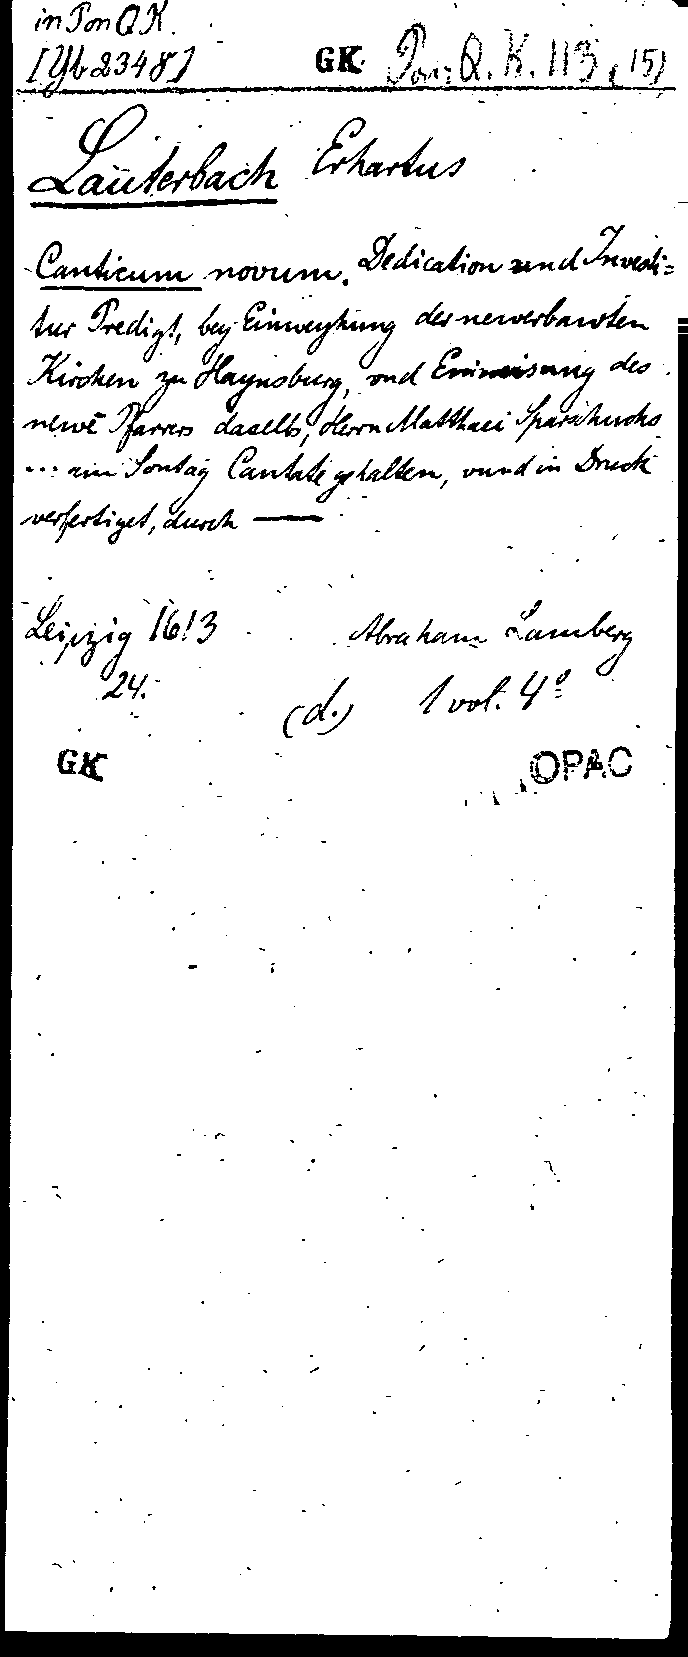 in Pon Q K.
[Yb 2348]
GK Pon Q. K. 113, (15)
Lauterbach Erhartus
Canticum novum. Dedication und Investi=
tur Predigt, bey Einweyhung der newerbawten
Kirchen zu Haynsburg, vnd Einweisung des
newē Pfarrers daselbs, Herrn Matthaei Sparschuchs
... am Sontag Cantate gehalten, vnnd in Druck
verfertiget, durch —
Leipzig 1613 Abraham Lamberg
24.
(d.) 1 vol. 4º
GK OPAC